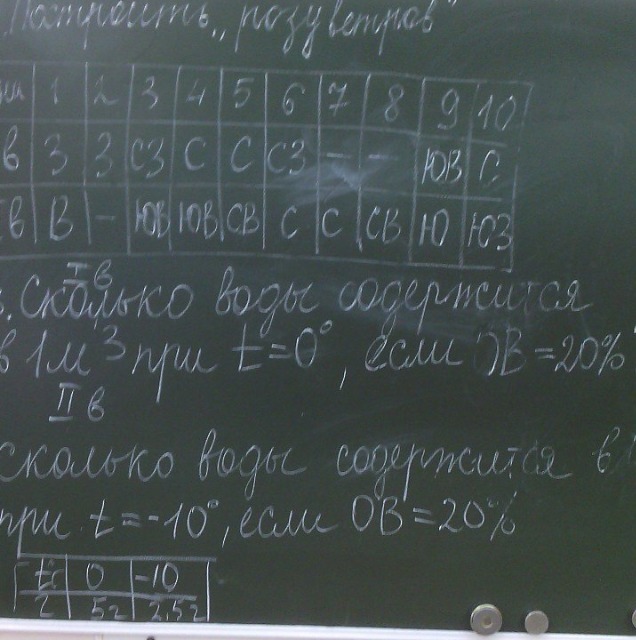 Построить „розу ветров"
ни 1 2 3 4 5 6 7 8 9 10
в З З СЗ С С СЗ - - ЮВ С
в В - ЮВ ЮВ СВ С С СВ Ю ЮЗ
I в
Сколько воды содержится
в 1м³ при t=0°, если ОВ=20%
II в
Сколько воды содержится в
при t=-10°, если ОВ=20%
t° 0 -10
г 5г 2,5г